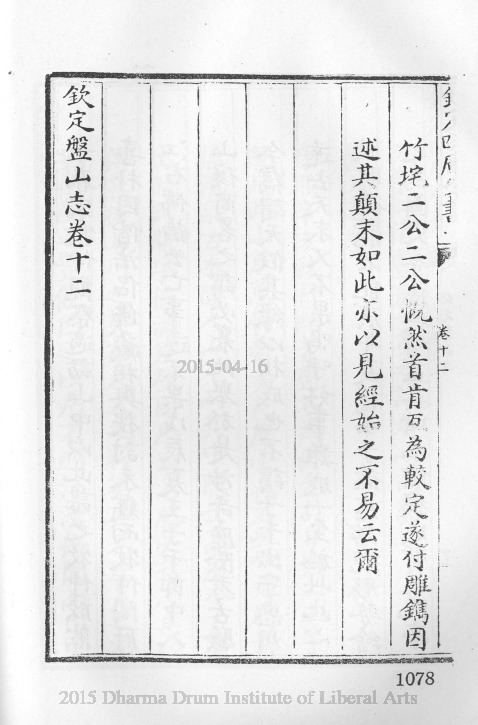 竹垞二公二公慨然首肯互為較定遂付雕鐫因
述其顛末如此亦以見經始之不易云爾
欽定盤山志卷十二
卷十二
2015-04-16
1078
2015 Dharma Drum Institute of Liberal Arts